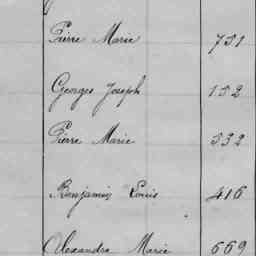 Pierre Marie 751
Georges Joseph 152
Pierre Marie 532
Benjamin Louis 416
Alexandre Marie 669